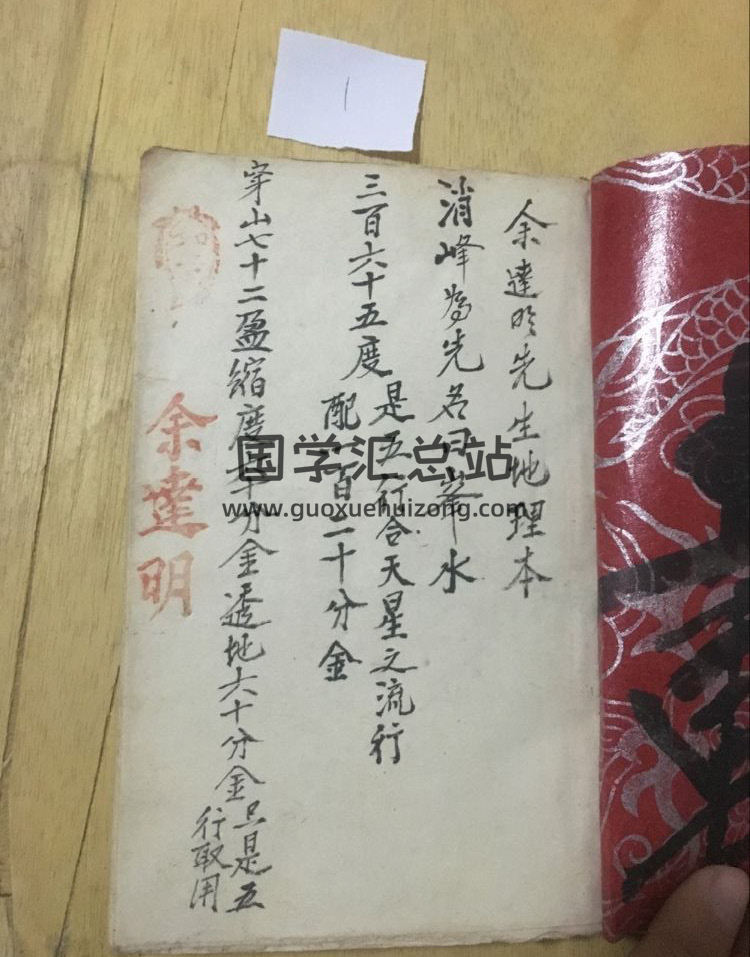 1
余達明先生地理本
消峰為先名曰峯水
三百六十五度
是五行合天星之流行
配一百二十分金
穿山七十二盈縮度六十分金透地六十分金
只是五
行取用
余達明
国学汇总站
www.guoxuehuizong.com